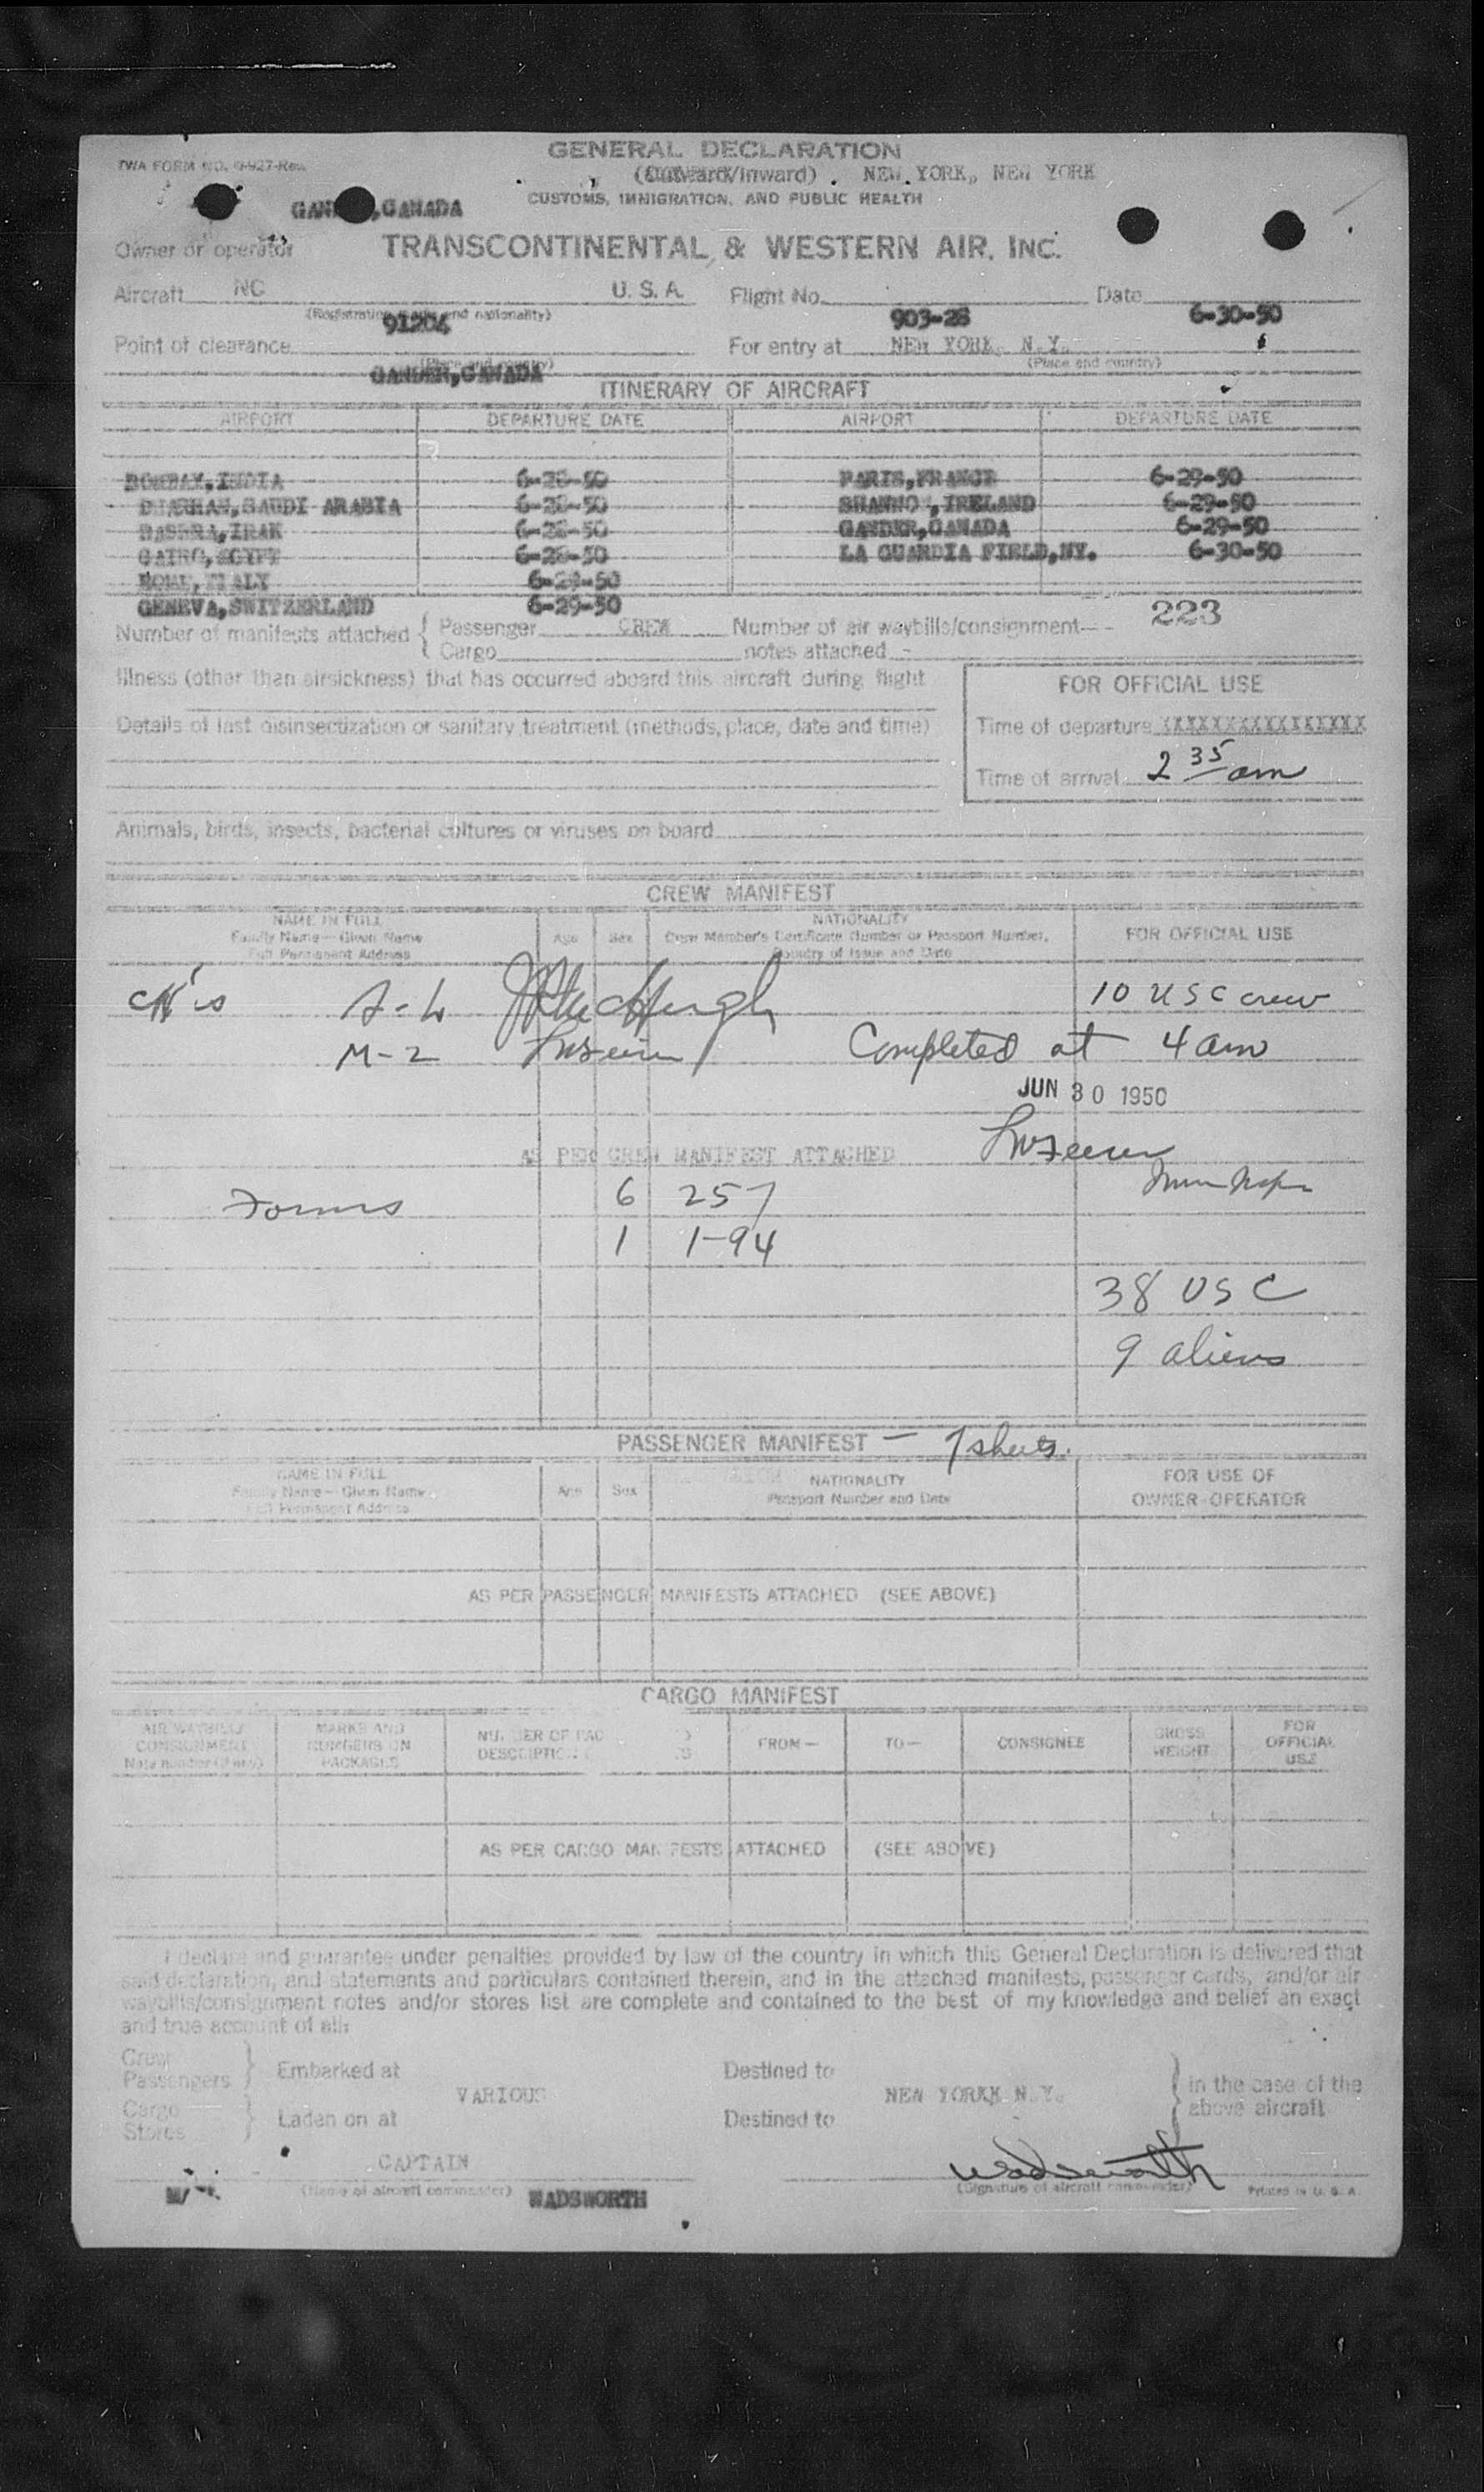 GENERAL DECLARATION
TWA FORM NO. 0-927-Rev.
(Outward/Inward) . NEW YORK, NEW YORK
CUSTOMS, IMMIGRATION, AND PUBLIC HEALTH
GANDER, CANADA
Owner or operator TRANSCONTINENTAL & WESTERN AIR, INC.
Aircraft NC U. S. A. Flight No. Date
(Registration marks and nationality)
91204 903-28 6-30-50
Point of clearance For entry at NEW YORK, N.Y.
(Place and country) (Place and country)
GANDER,CANADA
ITINERARY OF AIRCRAFT
AIRPORT DEPARTURE DATE AIRPORT DEPARTURE DATE
BOMBAY,INDIA 6-28-50 PARIS,FRANCE 6-29-50
DHARHAN,SAUDI ARABIA 6-28-50 SHANNON,IRELAND 6-29-50
BASRRA,IRAK 6-28-50 GANDER,CANADA 6-29-50
CAIRO,EGYPT 6-28-50 LA GUARDIA FIELD,NY. 6-30-50
ROME,ITALY 6-29-50
GENEVA,SWITZERLAND 6-29-50
223
Number of manifests attached { Passenger CREW Number of air waybills/consignment
Cargo notes attached -
Illness (other than airsickness) that has occurred aboard this aircraft during flight
FOR OFFICIAL USE
Details of last disinsectization or sanitary treatment (methods, place, date and time)
Time of departure XXXXXXXXXXXXXXXX
Time of arrival 2 35 am
Animals, birds, insects, bacterial cultures or viruses on board
CREW MANIFEST
NAME IN FULL
Family Name—Given Name
Full Permanent Address
Age Sex
NATIONALITY
Crew Member's Certificate Number or Passport Number,
Country of Issue and Date
FOR OFFICIAL USE
10 USC crew
M-2 Completed at 4 am
JUN 30 1950
AS PER CREW MANIFEST ATTACHED
Forms 6 257
1 1-94
38 USC
9 aliens
PASSENGER MANIFEST — 7 sheets.
NAME IN FULL
Family Name—Given Name
Full Permanent Address
Age Sex
NATIONALITY
Passport Number and Date
FOR USE OF
OWNER-OPERATOR
AS PER PASSENGER MANIFESTS ATTACHED (SEE ABOVE)
CARGO MANIFEST
AIR WAYBILL/
CONSIGNMENT
Note number (if any)
MARKS AND
NUMBERS ON
PACKAGES
NUMBER OF PAC
DESCRIPTION
FROM— TO— CONSIGNEE
GROSS
WEIGHT
FOR
OFFICIAL
USE
AS PER CARGO MANIFESTS ATTACHED (SEE ABOVE)
I declare and guarantee under penalties provided by law of the country in which this General Declaration is delivered that
said declaration, and statements and particulars contained therein, and in the attached manifests, passenger cards, and/or air
waybills/consignment notes and/or stores list are complete and contained to the best of my knowledge and belief an exact
and true account of all:
Crew
Passengers } Embarked at Destined to
VARIOUS NEW YORK, N.Y. } in the case of the
above aircraft
Cargo
Stores } Laden on at Destined to
CAPTAIN Wadsworth
(Name of aircraft commander) WADSWORTH (Signature of aircraft commander) Printed in U. S. A.